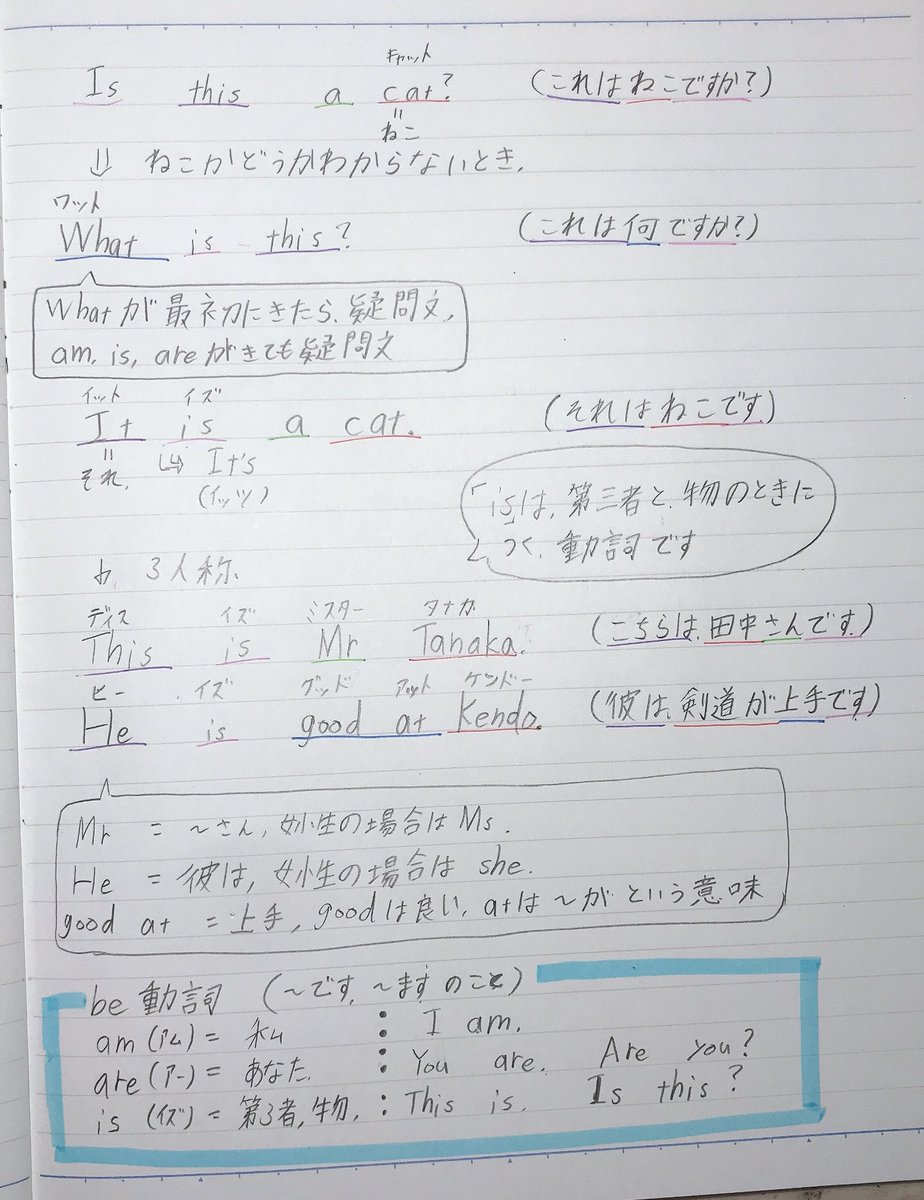 キャット
Is this a cat? (これはねこですか?)
=
ねこ
⇓ ねこかどうかわからないとき.
ワット
What is this? (これは何ですか?)
Whatが最初にきたら、疑問文,
am, is, areがきても疑問文
イット イズ
It is a cat. (それはねこです)
= ↳ It's
それ. (イッツ)
「is」は、第三者と、物のときに
つく、動詞です
3人称、
ディス イズ ミスター タナカ
This is Mr Tanaka. (こちらは、田中さんです.)
ヒー イズ グッド アット ケンドー
He is good at Kendo. (彼は、剣道が上手です)
Mr = ~さん, 女性の場合はMs.
He = 彼は, 女性の場合は she.
good at = 上手, goodは良い, atは~がという意味
be動詞 (~です, ~ます のこと)
am (アム) = 私 : I am.
are (アー) = あなた. : You are. Are you?
is (イズ) = 第3者, 物. : This is. Is this?